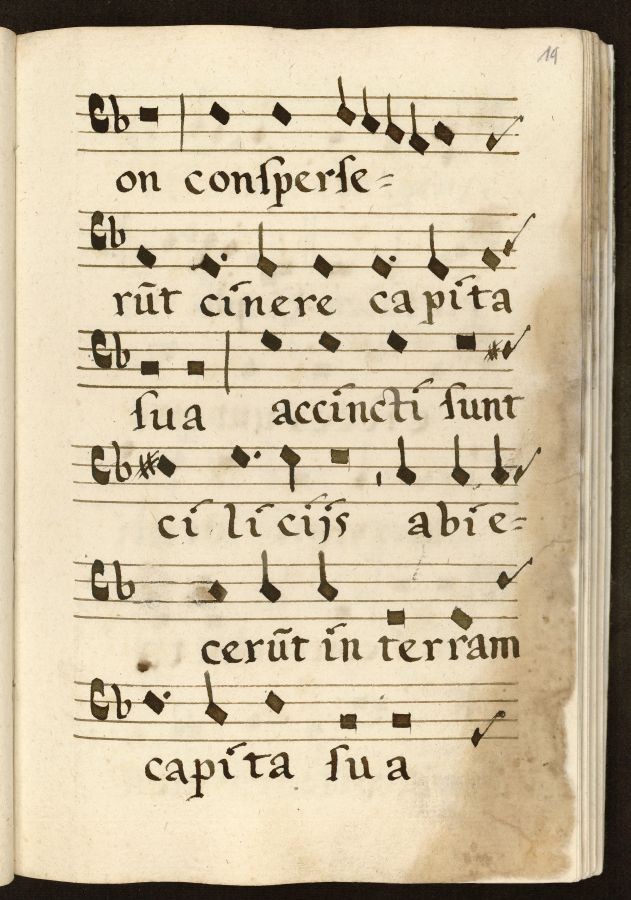 19
on conſperſe=
rūt cinere capita
ſua accincti ſunt
cilicijs abie=
cerūt in terram
capita ſua